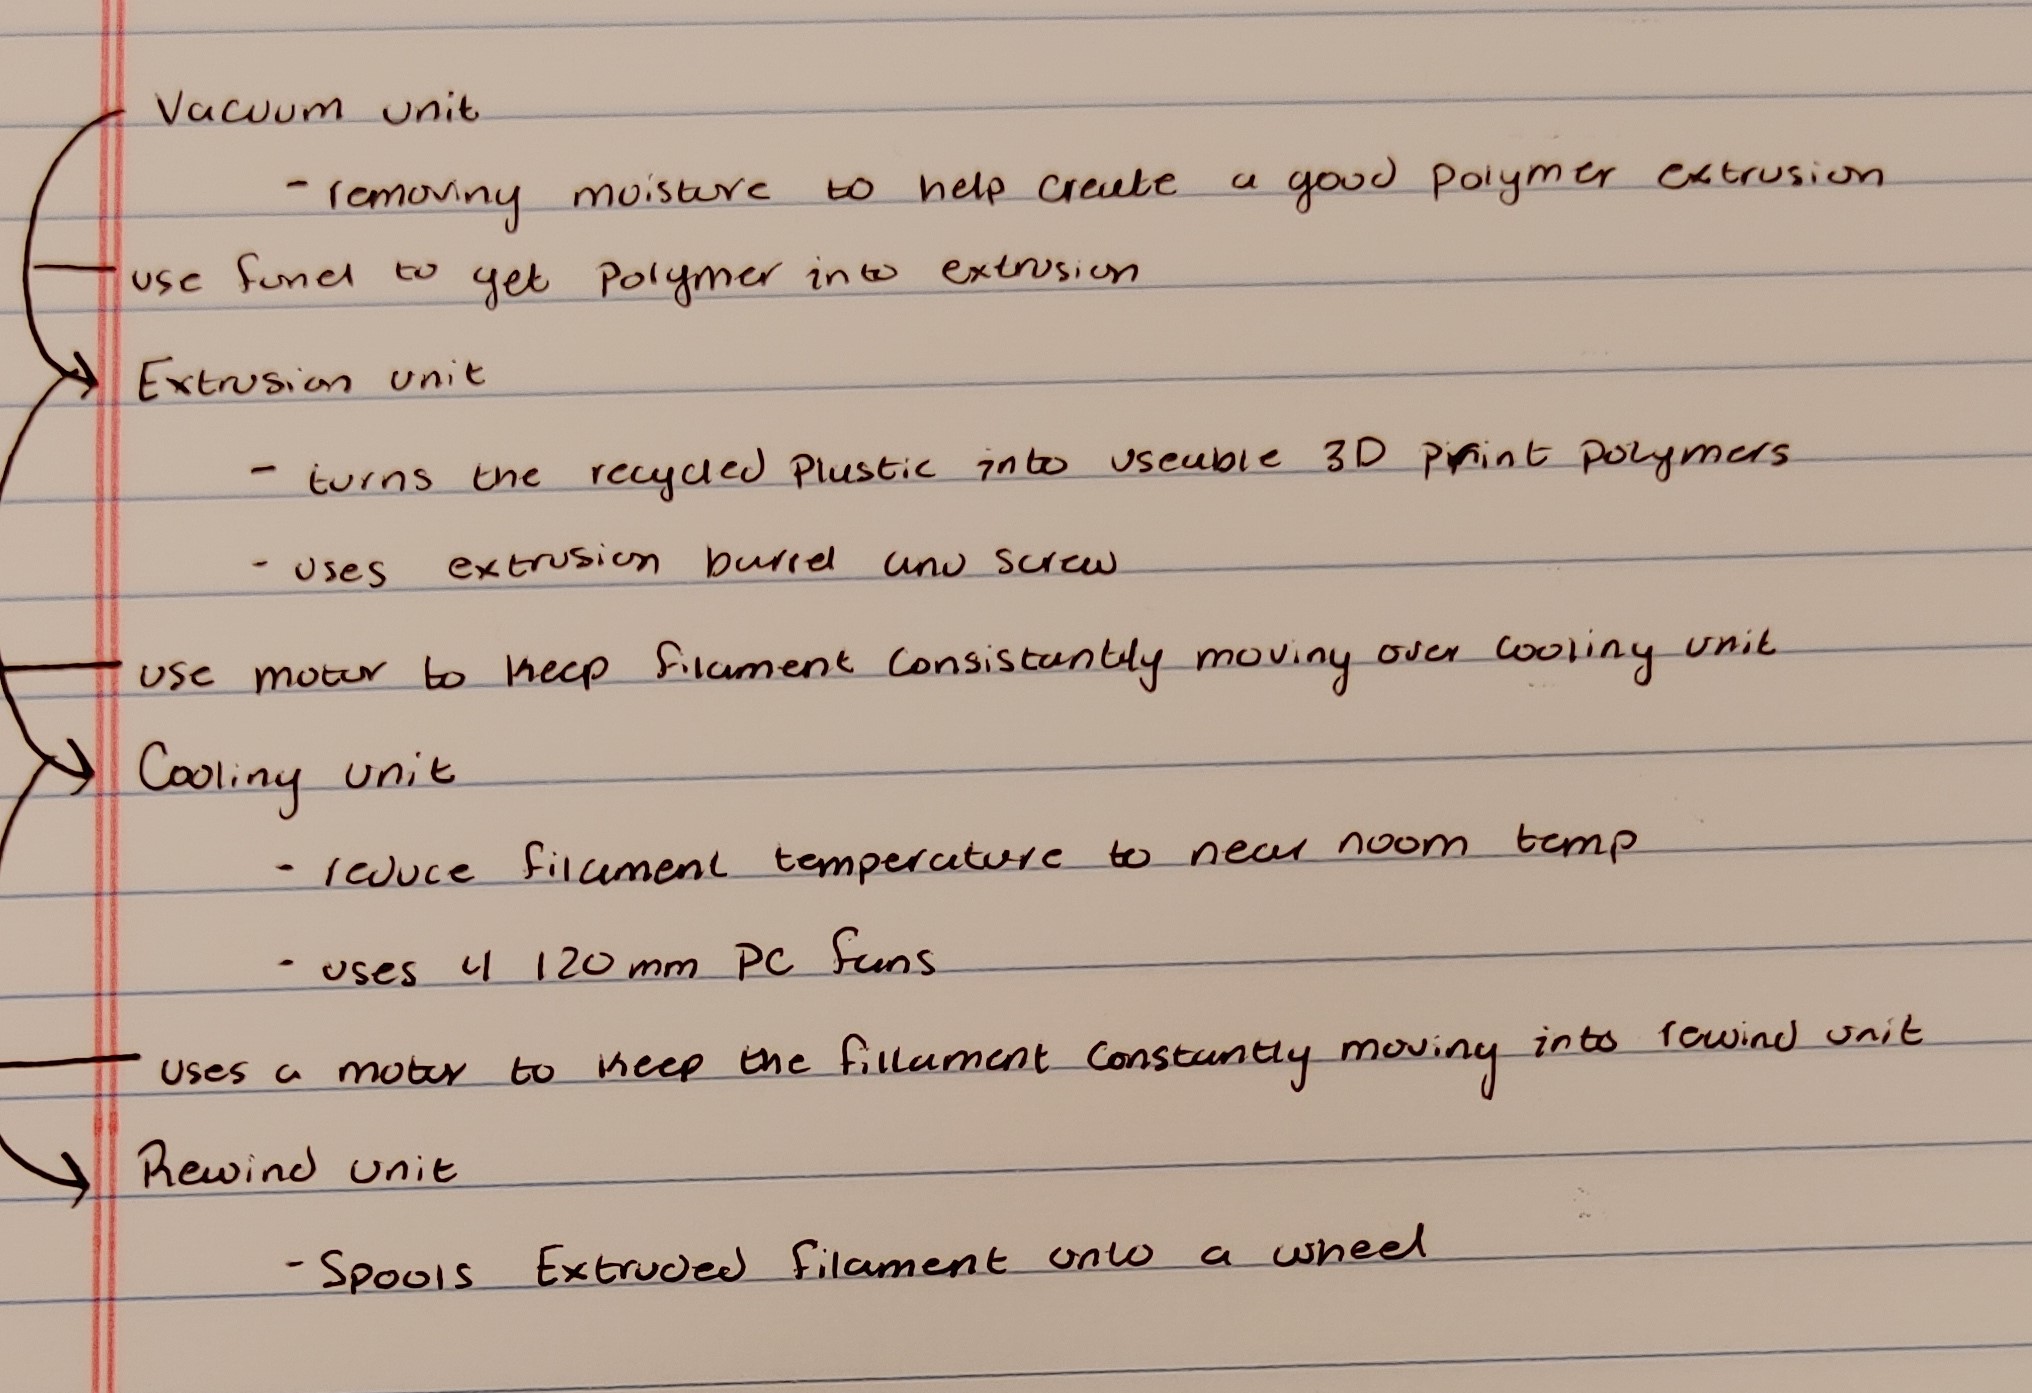 Vacuum unit
- removing moisture to help create a good polymer extrusion
use funel to get polymer into extrusion
Extrusion unit
- turns the recycled plastic into useable 3D print polymers
- uses extrusion barrel and screw
use motor to keep filament consistantly moving over cooling unit
Cooling unit
- reduce filament temperature to near room temp
- uses 4 120mm PC fans
uses a motor to keep the fillament constantly moving into rewind unit
Rewind unit
- Spools Extruded filament onto a wheel